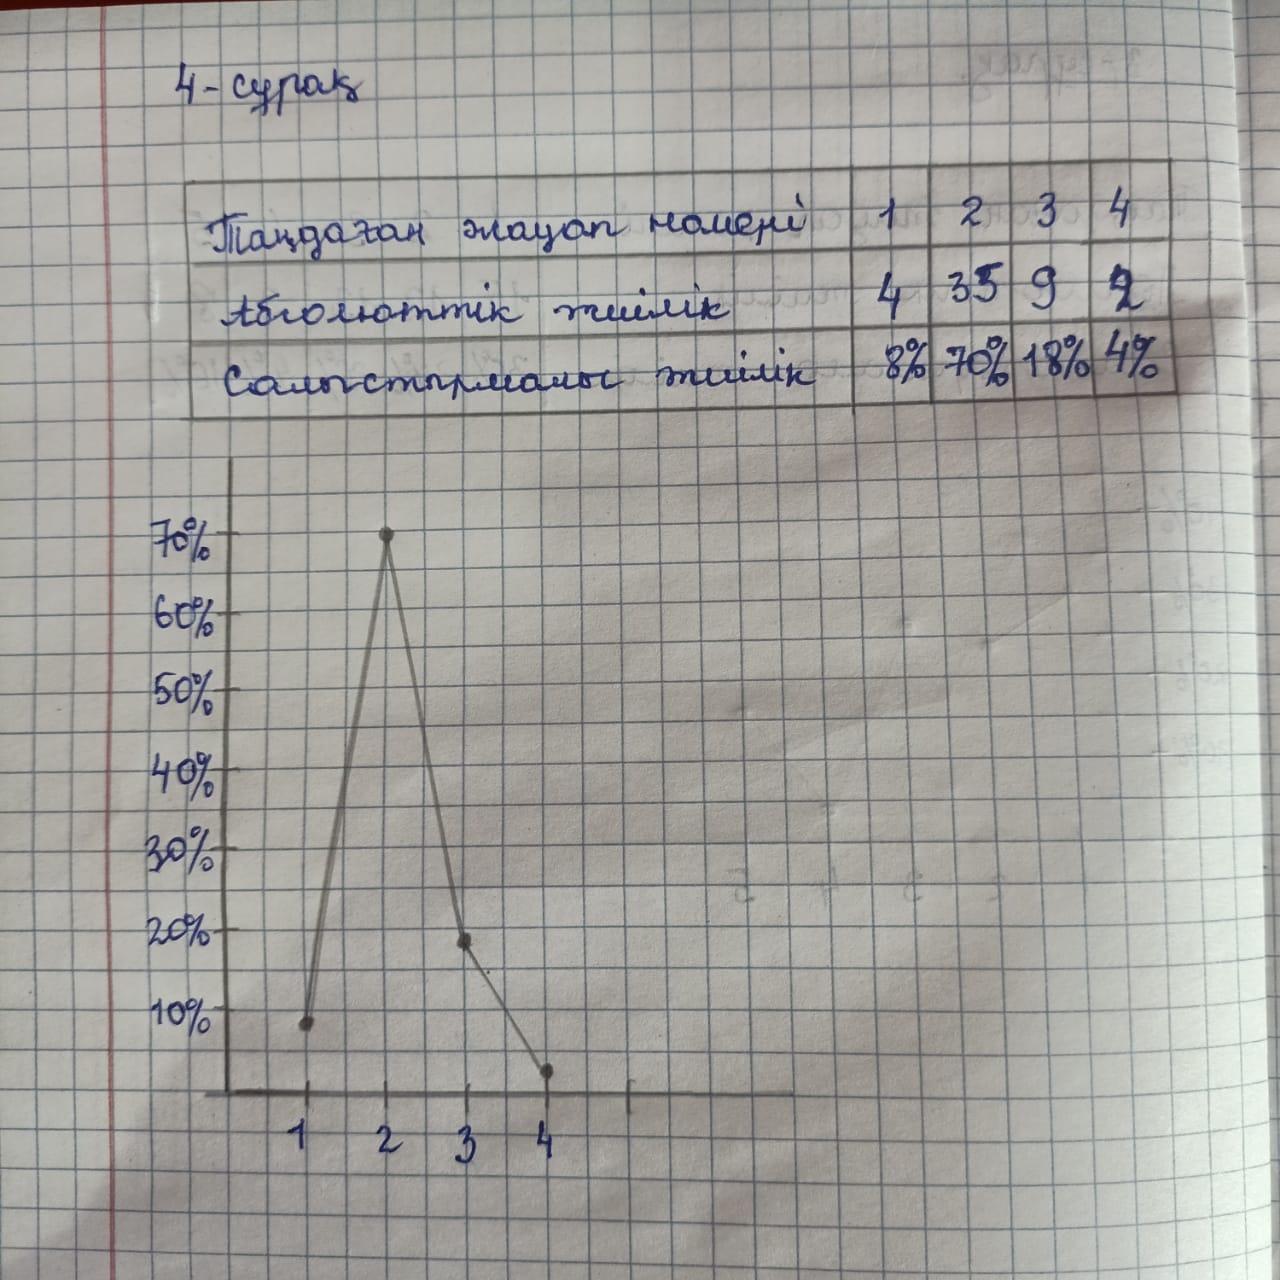 4-сұрақ
Таңдаған жауап номері 1 2 3 4
Абсолюттік жиілік 4 35 9 2
Салыстырмалы жиілік 8% 70% 18% 4%
70%
60%
50%
40%
30%
20%
10%
1 2 3 4